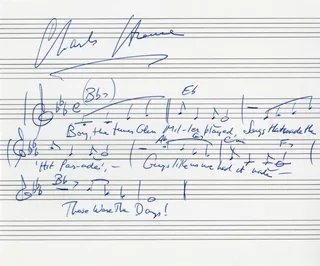 Charles Strouse
(Bb7) Eb
Boy, the tunes Glen Mil-ler played, Songs that made the
Ab Cm F7
Hit Par-ade, — Guys like us we had it made —
Bb7
Those Were The Days!